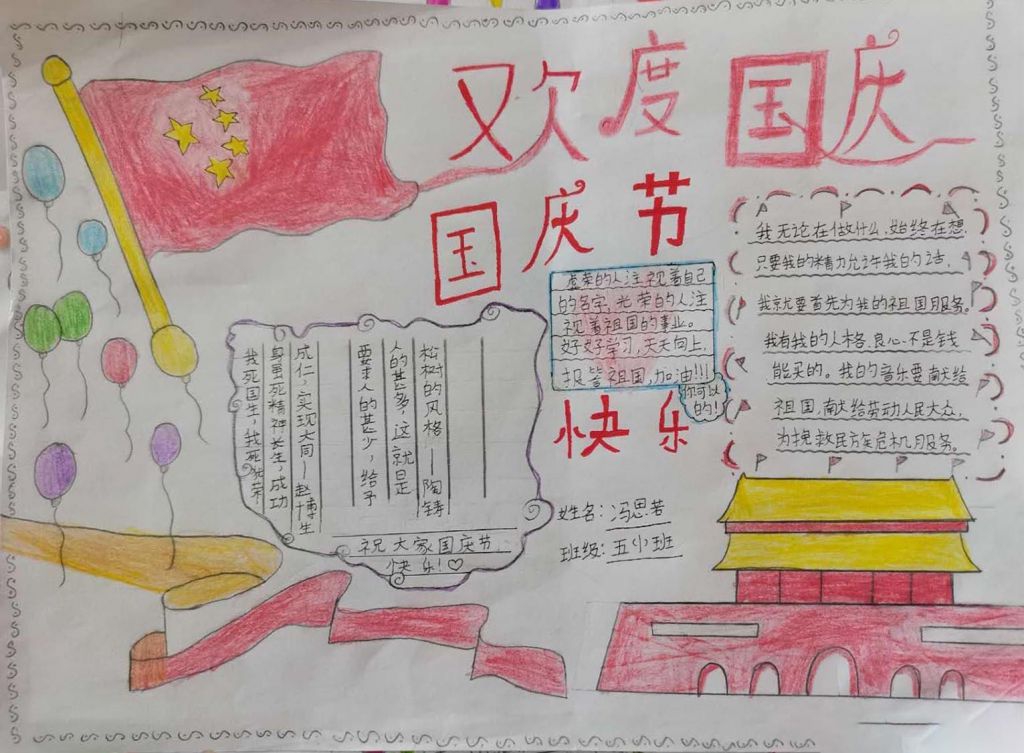 欢度国庆
国庆节
快乐
虚荣的人注视着自己
的名字,光荣的人注
视着祖国的事业。
好好学习,天天向上,
报答祖国,加油!!!
你可以
的!
我无论在做什么,始终在想,
只要我的精力允许我的话,
我就要首先为我的祖国服务。
我有我的人格、良心、不是钱
能买的。我的音乐要献给
祖国,献给劳动人民大众,
为挽救民族危机服务。
我死国生,我死犹荣,
身虽死精神长生,成功
成仁,实现大同——赵博生
要求人的甚少,给予
人的甚多,这就是
松树的风格——陶铸
祝大家国庆节
快乐!♡
姓名:冯思若
班级:五(1)班